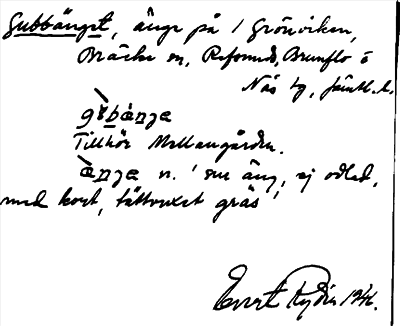 Gubbänget, änge på 1 Grönviken,
Bräcke sn, Refsunds, Brunflo o
Näs tg, Jämtl. l.
gòbàŋe
Tillhör Mellangården.
àŋe n. 'en äng, ej odlad,
med kort, tättvuxet gräs'
Evert Rydin 1941.